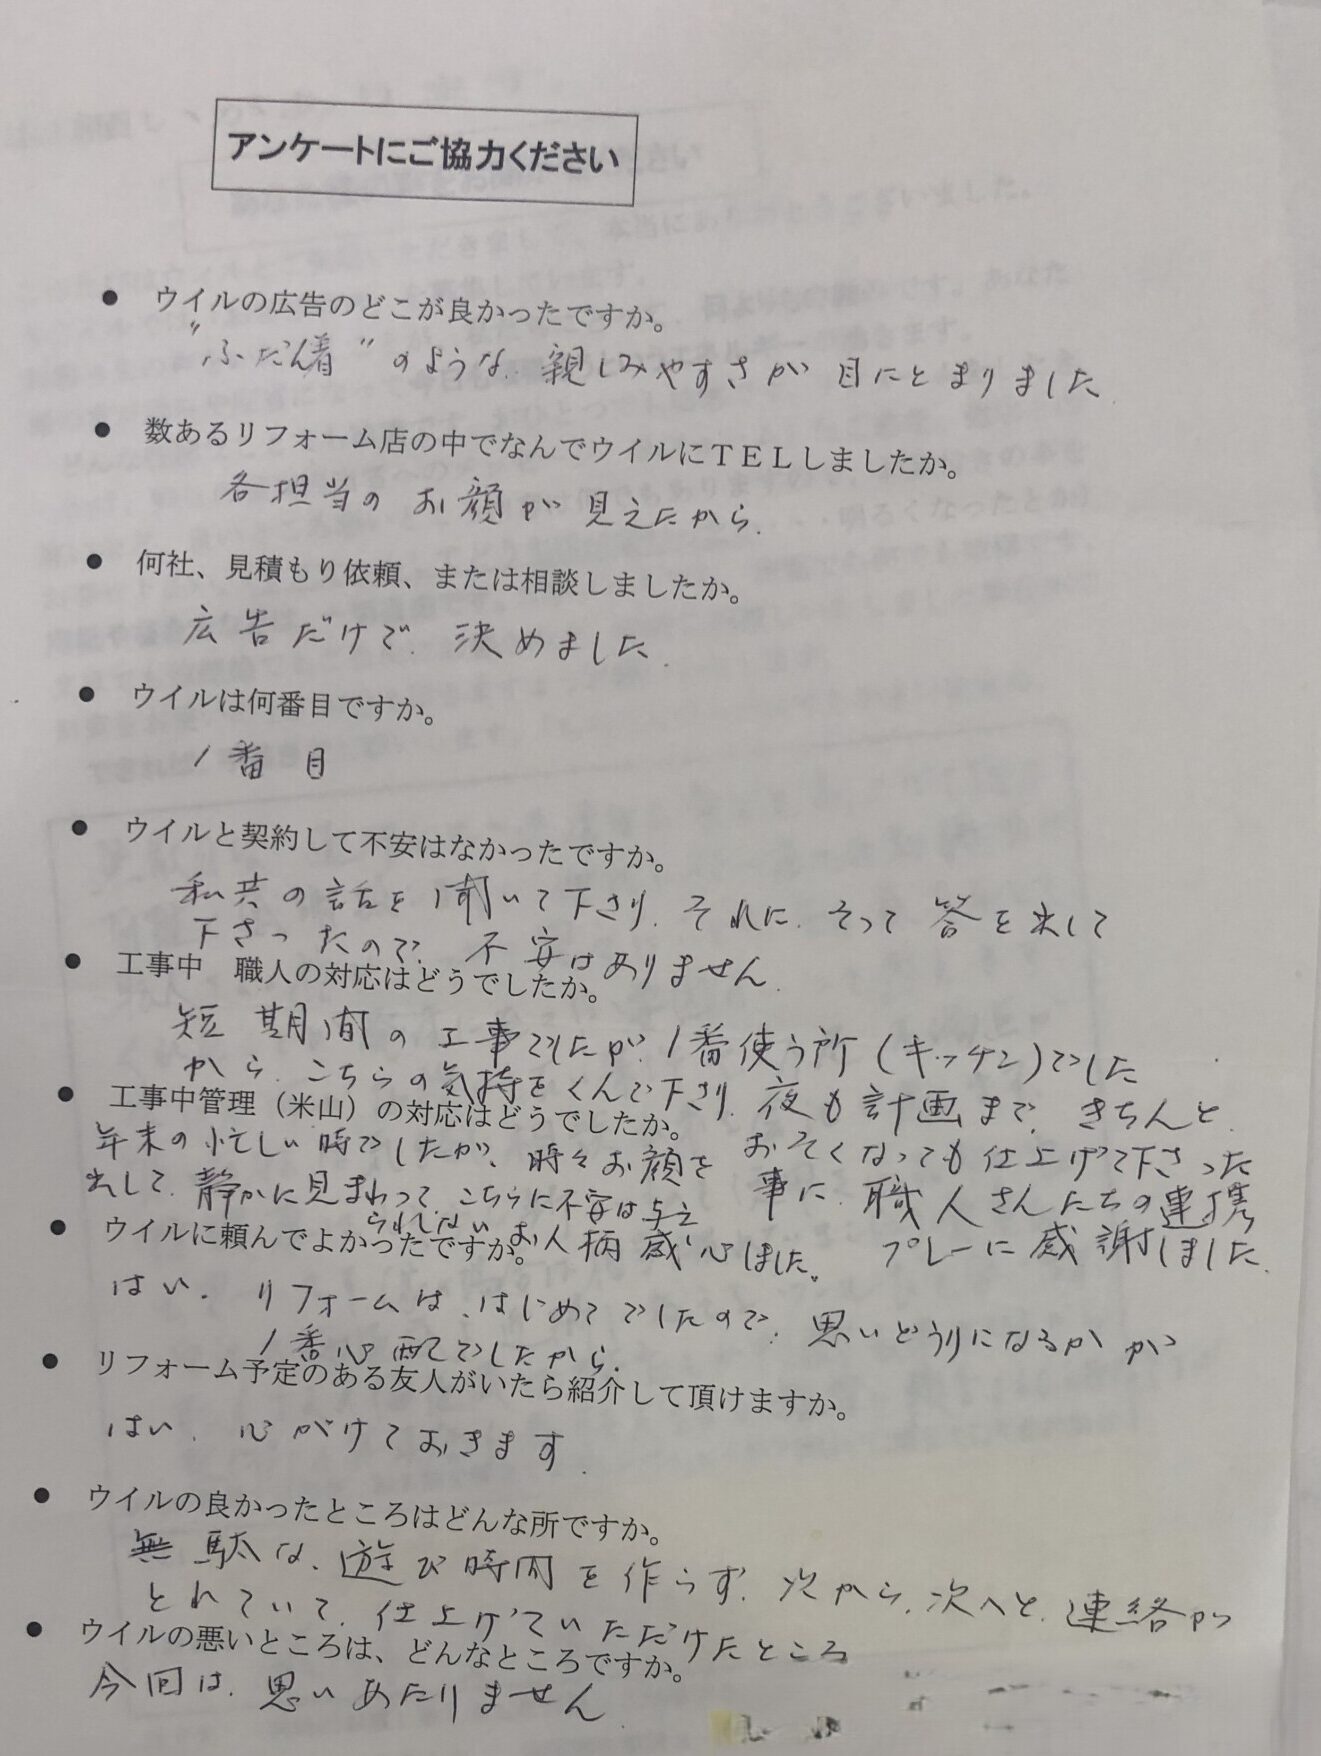 アンケートにご協力ください
● ウイルの広告のどこが良かったですか。
"ふだん着"のような、親しみやすさが 目にとまりました
● 数あるリフォーム店の中でなんでウイルにＴＥＬしましたか。
各担当の お顔が 見えたから.
● 何社、見積もり依頼、または相談しましたか。
広告だけで、決めました.
● ウイルは何番目ですか。
1番目
● ウイルと契約して不安はなかったですか。
私共の話を聞いて下さり、それに、そって 答を出して
下さったので、不安はありません.
● 工事中　職人の対応はどうでしたか。
短期間の工事でしたが、1番使う所(キッチン)でした
から、こちらの気持をくんで下さり、夜も計画まで、きちんと、
おそくなっても仕上げて下さった
事に、職人さんたちの連携
プレーに感謝しました.
● 工事中管理（米山）の対応はどうでしたか。
年末の忙しい時でしたが、時々お顔を
出して、静かに見まわって、こちらに不安は与え
られしない お人柄 感心しました。
● ウイルに頼んでよかったですか。
はい、リフォームは、はじめてでしたので、思いどうりになるかが
1番心配でしたから.
● リフォーム予定のある友人がいたら紹介して頂けますか。
はい、心がけておきます.
● ウイルの良かったところはどんな所ですか。
無駄な、遊び時間を作らず、次から、次へと、連絡が
とれていて、仕上げていただけたところ
● ウイルの悪いところは、どんなところですか。
今回は、思いあたりません.